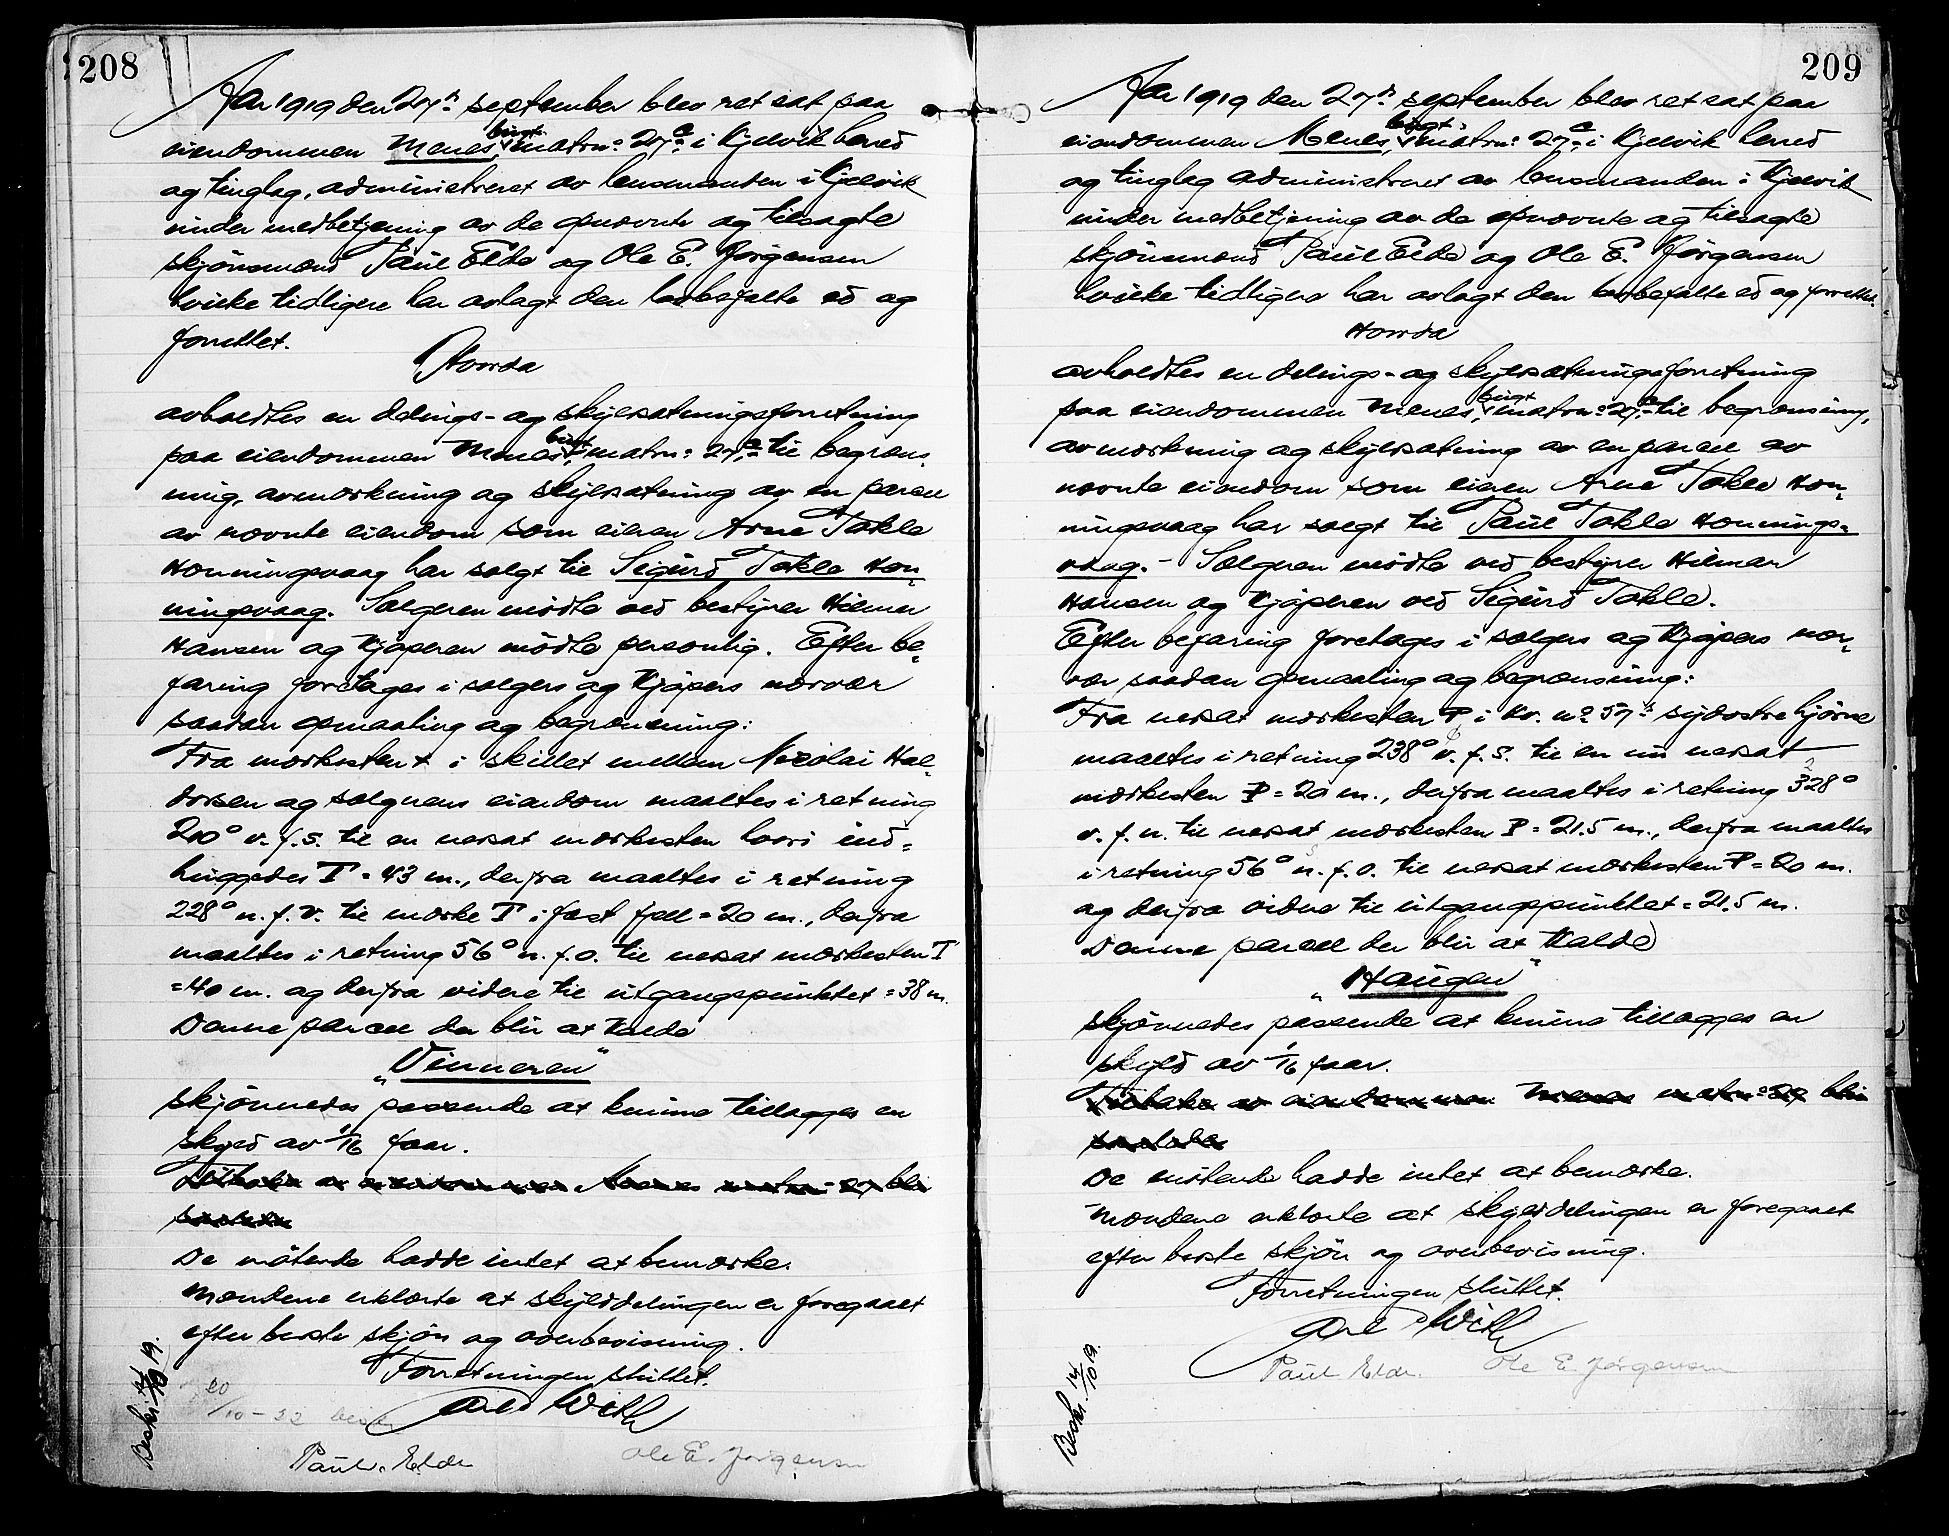 208
Aar 1919 den 27de september blev ret sat paa
eiendommen Menes, bugt matrn: 27a i Kjelvik herred
og tinglag, administreret av lensmanden i Kjelvik
under medbetjening av de opnævnte og tilsagte
skjönsmænd Paul Elde og Ole E. Jörgensen
hvilke tidligere har avlagt den lovbefalte ed og
forrettet.
Hvorda
avholdtes en delings- og skyldsætningsforretning
paa eiendommen Menes, bugt matrn: 27,a til begræns-
ning, avmerkning og skyldsætning av en parcel
av nævnte eiendom som eieren Arne Takle
Honningsvaag har solgt til Sigurd Takle Hon-
ningsvaag. Sælgeren mödte ved bestyrer Hilmar
Hansen og kjöperen mödte personlig. Efter be-
faring foretages i sælgers og kjöpers nærvær
saadan opmaaling og begrænsning:
Fra merkesten + i skillet mellem Nicolai Hal-
dorsen og sælgerens eiendom maaltes i retning
200° v. f. s. til en nersat merkesten hvori ind-
huggedes T = 43 m., derfra maaltes i retning
228° n. f. v. til merke T i fast fjell = 20 m., derfra
maaltes i retning 56° n. f. o. til nersat merkesten T
= 40 m. og derfra videre til utgangspunktet = 38 m.
Denne parcel der blir at kalde
„Vinneren“
skjönnedes passende at kunne tillægges en
skyld av 1/16 faar.
De mötende hadde intet at bemerke.
Mændene erklærte at skylddelingen er foregaaet
efter beste skjön og overbevisning.
Forretningen sluttet.
Carl With
Paul Elde
Ole E. Jörgensen
Beskr. 14/10 19.
20/10 - 22
209
Aar 1919 den 27de september blev ret sat paa
eiendommen Menes, bugt, matrn: 27a i Kjelvik herred
og tinglag administreret av lensmanden i Kjelvik
under medbetjening av de opnævnte og tilsagte
skjönsmænd Paul Elde og Ole E. Jörgensen
hvilke tidligere har avlagt den lovbefalte ed og forrettet.
Hvorda
avholdtes en delings- og skyldsætningsforretning
paa eiendommen Menes, bugt matrn: 27,a til begrænsning,
avmerkning og skyldsætning av en parcel av
nævnte eiendom som eieren Arne Takle Hon-
ningsvaag har solgt til Paul Takle Honnings-
vaag. - Sælgeren mödte ved bestyrer Hilmar
Hansen og kjöperen ved Sigurd Takle.
Efter befaring foretages i sælgers og kjöpers nær-
vær saadan opmaaling og begrænsning:
Fra nersat merkesten P i kv. no 57's sydöstre hjörne
maaltes i retning 238° v. f. s. til en nu nersat
merkesten P = 20 m., derfra maaltes i retning 328°
v. f. n. til nersat merkesten P = 21.5 m., derfra maaltes
i retning 56° n. f. o. til nersat merkesten P = 20 m.
og derfra videre til utgangspunktet = 21,5 m.
Denne parcel der blir at kalde
„Haugen“
skjönnedes passende at kunne tillægges en
skyld av 1/16 faar.
De mötende hadde intet at bemerke.
Mændene erklærte at skylddelingen er foregaaet
efter beste skjön og overbevisning.
Forretningen sluttet.
Carl With
Paul Elde.
Ole E. Jörgensen
Beskr. 14/10 19.